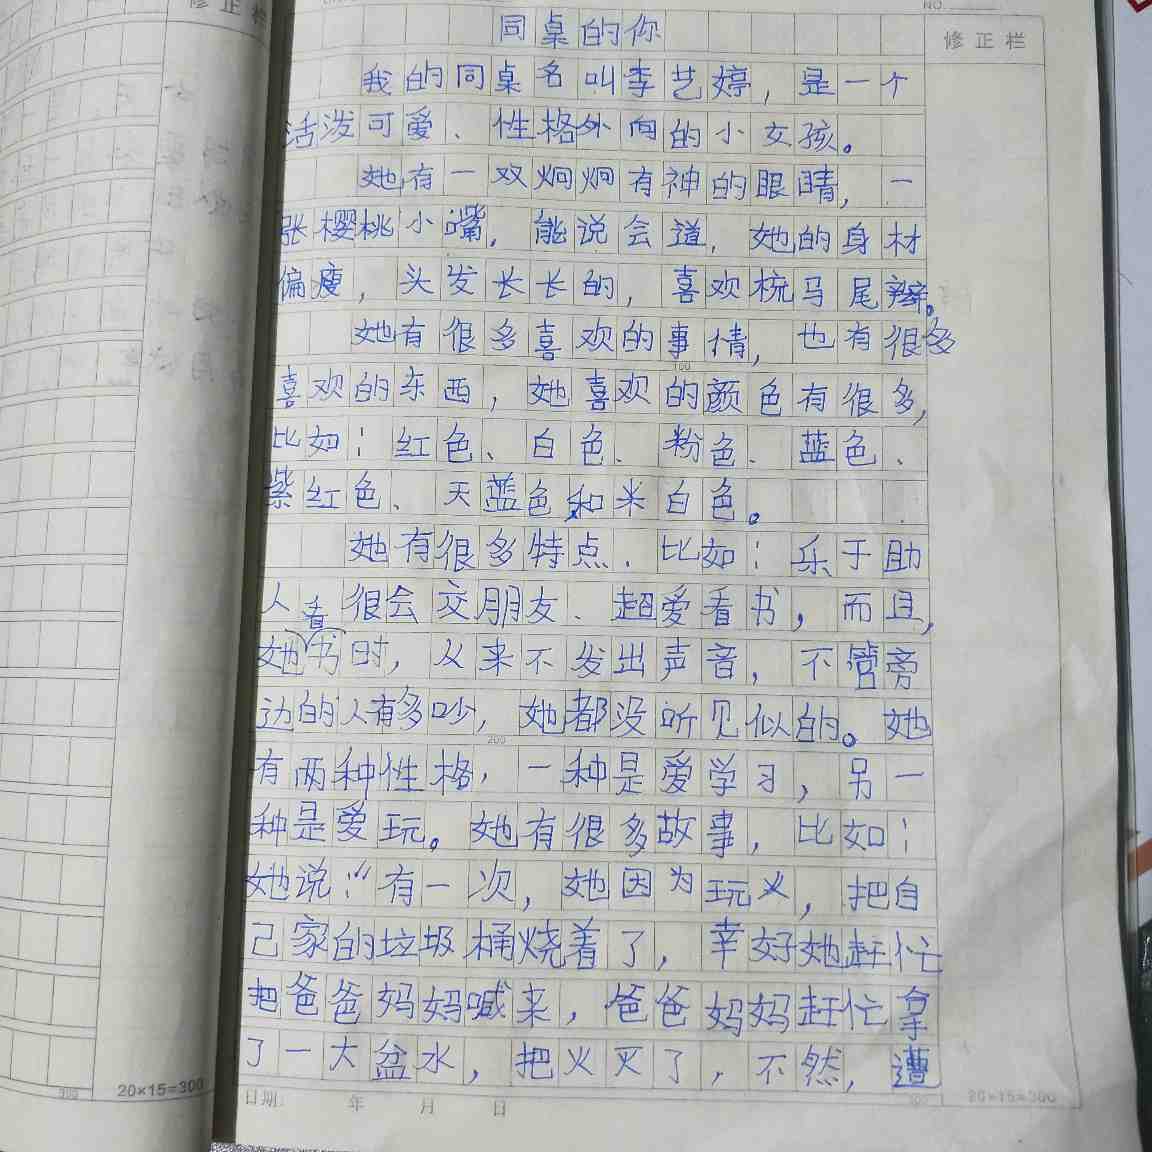 修正栏
NO.
修正栏
同桌的你
我的同桌名叫李艺婷，是一个
活泼可爱、性格外向的小女孩。
她有一双炯炯有神的眼睛，一
张樱桃小嘴，能说会道，她的身材
偏瘦，头发长长的，喜欢梳马尾辫。
她有很多喜欢的事情，也有很多
100
喜欢的东西，她喜欢的颜色有很多，
比如：红色、白色、粉色、蓝色、
紫红色、天蓝色和米白色。
她有很多特点，比如：乐于助
人、很会交朋友、超爱看书，而且，
她看书时，从来不发出声音，不管旁
边的人有多吵，她都没听见似的。她
200
有两种性格，一种是爱学习，另一
种是爱玩。她有很多故事，比如：
她说：“有一次，她因为玩火，把自
己家的垃圾桶烧着了，幸好她赶忙
把爸爸妈妈喊来，爸爸妈妈赶忙拿
了一大盆水，把火灭了，不然，遭
300
20×15=300
日期： 年 月 日
300
20×15=300